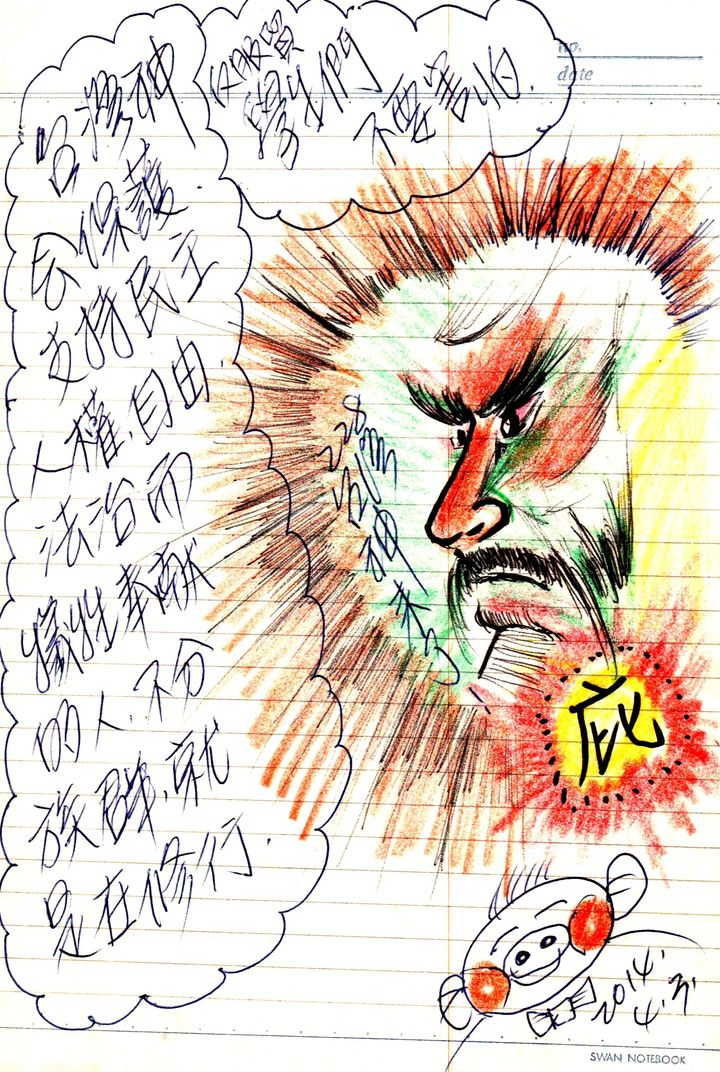 no.
date
反服貿
學生們
不要害怕.
台灣神
會保護
支持民主
人權.自由.
法治而
犧牲奉獻
的人.不分
族群.就
是在修行.
228台灣神來了
庇
2014.
4.3.
SWAN NOTEBOOK